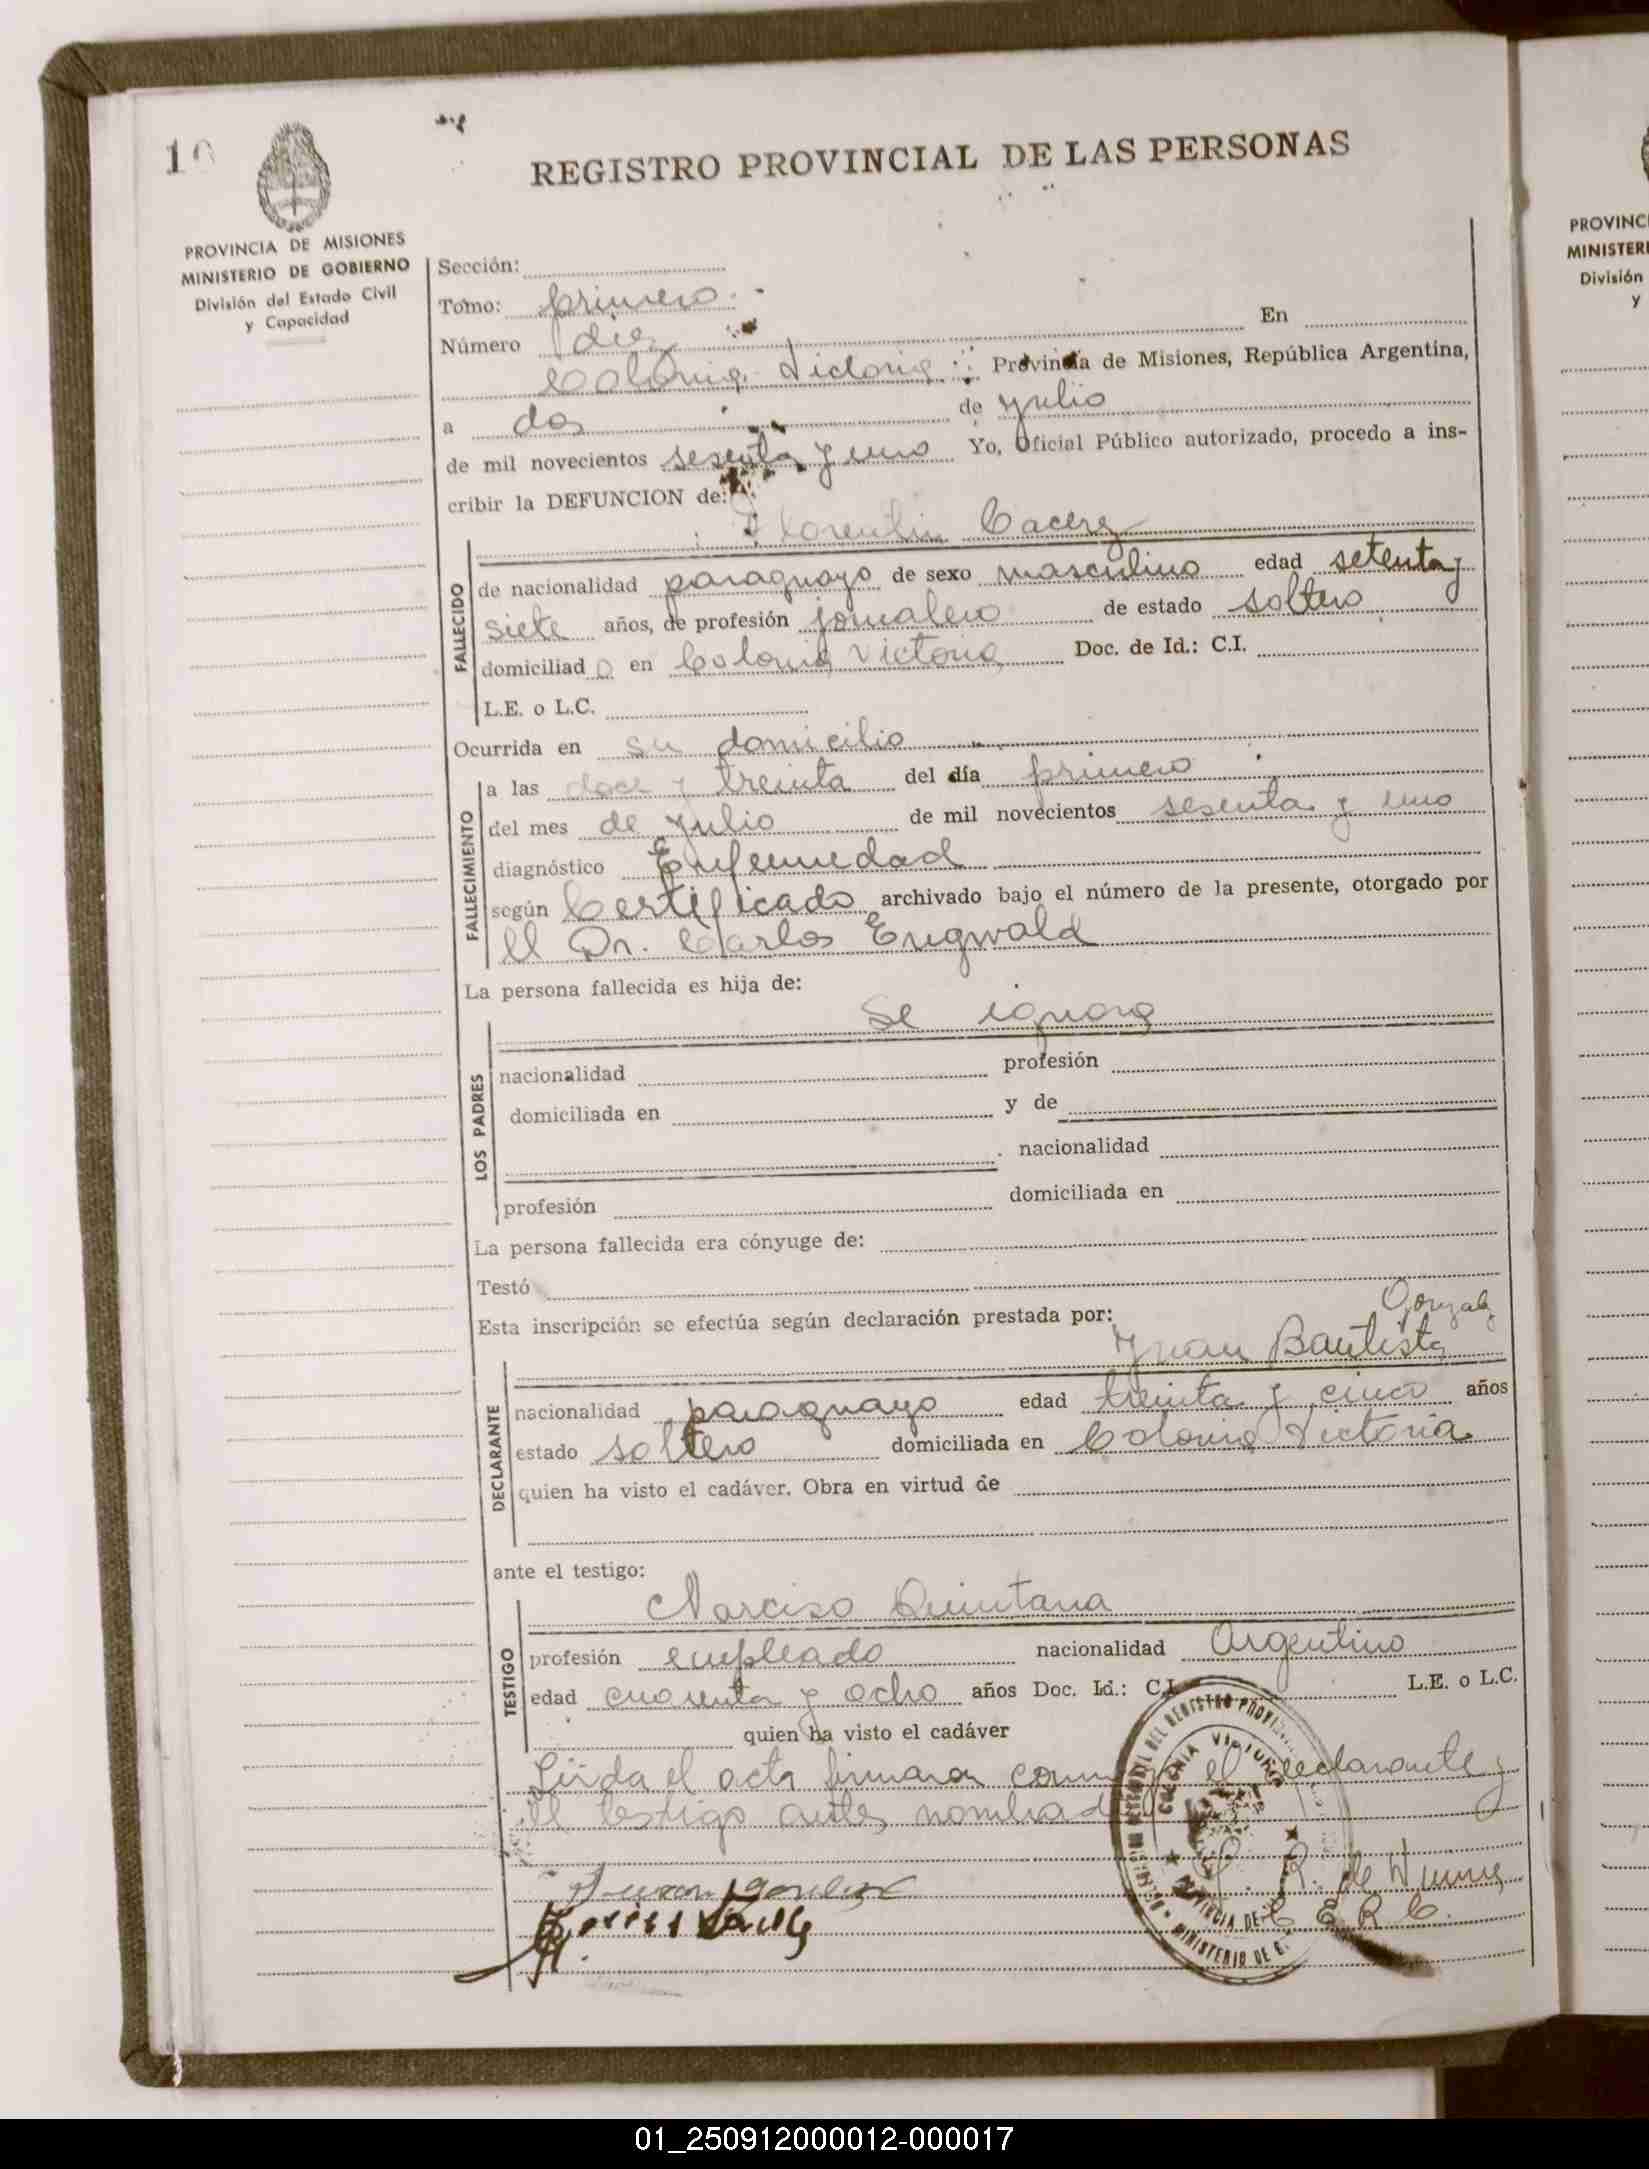 10
REGISTRO PROVINCIAL DE LAS PERSONAS
PROVINCIA DE MISIONES
MINISTERIO DE GOBIERNO
División del Estado Civil
y Capacidad
Sección:
Tomo: primero
Número diez En
Colonia Victoria Provincia de Misiones, República Argentina,
a dos de Julio
de mil novecientos sesenta y uno Yo, Oficial Público autorizado, procedo a ins-
cribir la DEFUNCION de:
Florentin Cacerez
FALLECIDO
de nacionalidad paraguayo de sexo masculino edad setenta y
siete años, de profesión jornalero de estado soltero
domiciliado en Colonia Victoria Doc. de Id.: C.I.
L.E. o L.C.
Ocurrida en su domicilio
FALLECIMIENTO
a las doce y treinta del día primero
del mes de Julio de mil novecientos sesenta y uno
diagnóstico Enfermedad
según Certificado archivado bajo el número de la presente, otorgado por
el Dr. Carlos Engwald
La persona fallecida es hija de:
Se ignora
LOS PADRES
nacionalidad profesión
domiciliada en y de
nacionalidad
profesión domiciliada en
La persona fallecida era cónyuge de:
Testó
Esta inscripción se efectúa según declaración prestada por:
Juan Bautista Gonzalz
DECLARANTE
nacionalidad paraguayo edad treinta y cinco años
estado soltero domiciliada en Colonia Victoria
quien ha visto el cadáver. Obra en virtud de
ante el testigo:
Narciso Quintana
TESTIGO
profesión empleado nacionalidad Argentino
edad cuarenta y ocho años Doc. Id.: C.I. L.E. o L.C.
quien ha visto el cadáver
Leida el acta firmaron el declarante y
el testigo antes
COLONIA VICTORIA
PROVINCIA DE
MINISTERIO DE G.
PROVINC
MINISTERI
División
y
01_250912000012-000017